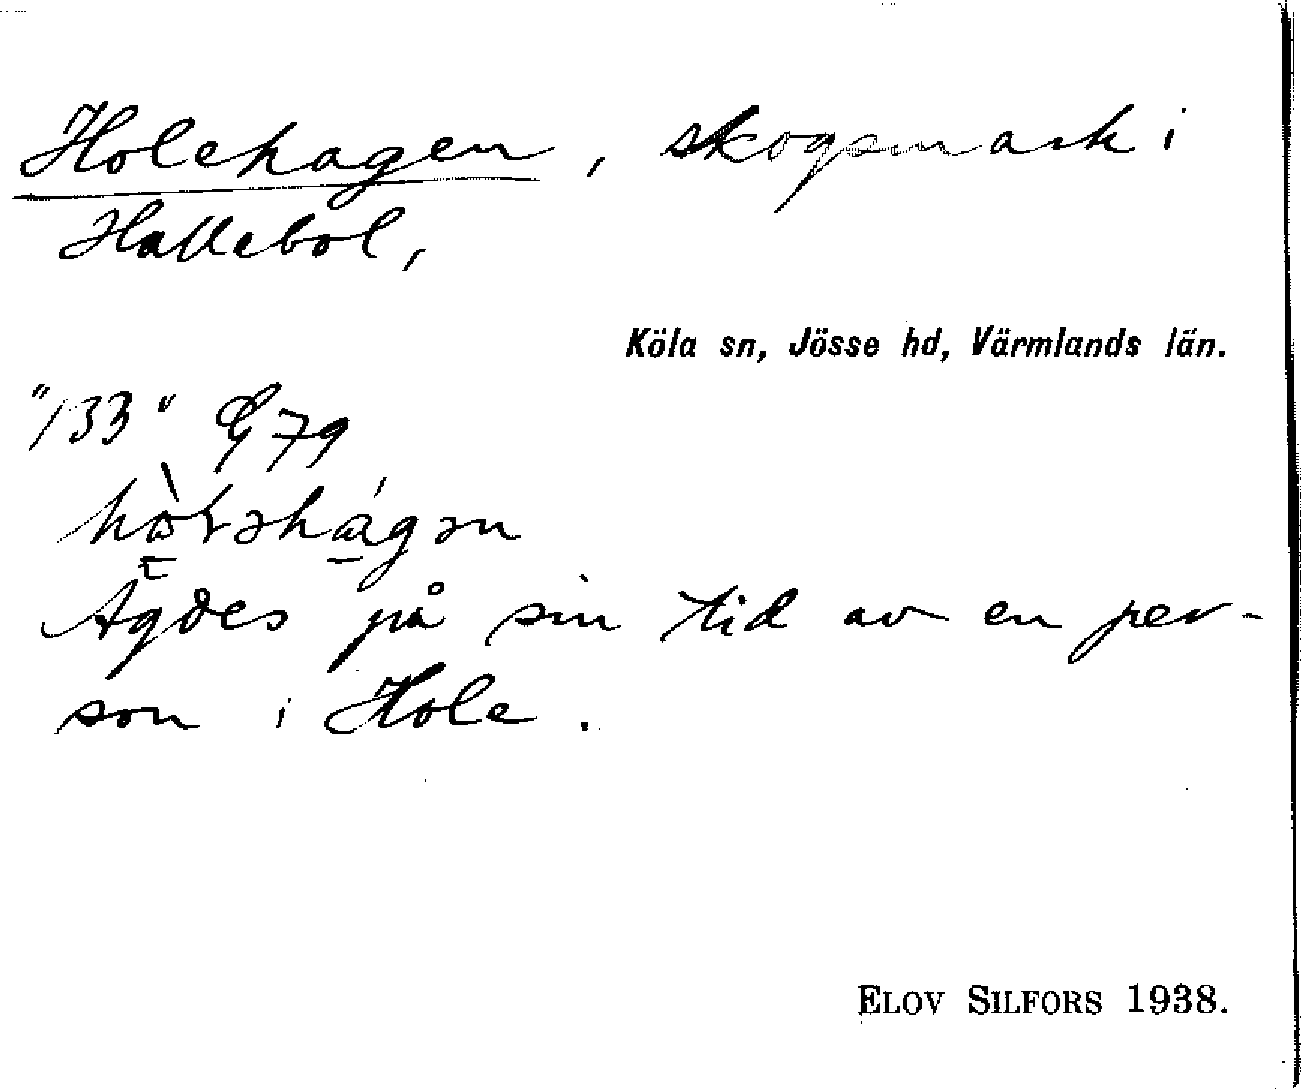 Holehagen, skogsmark i
Hallebol,
Köla sn, Jösse hd, Värmlands län.
"133" G 79
Ägdes på sin tid av en per-
son i Hole.
ELOV SILFORS 1938.